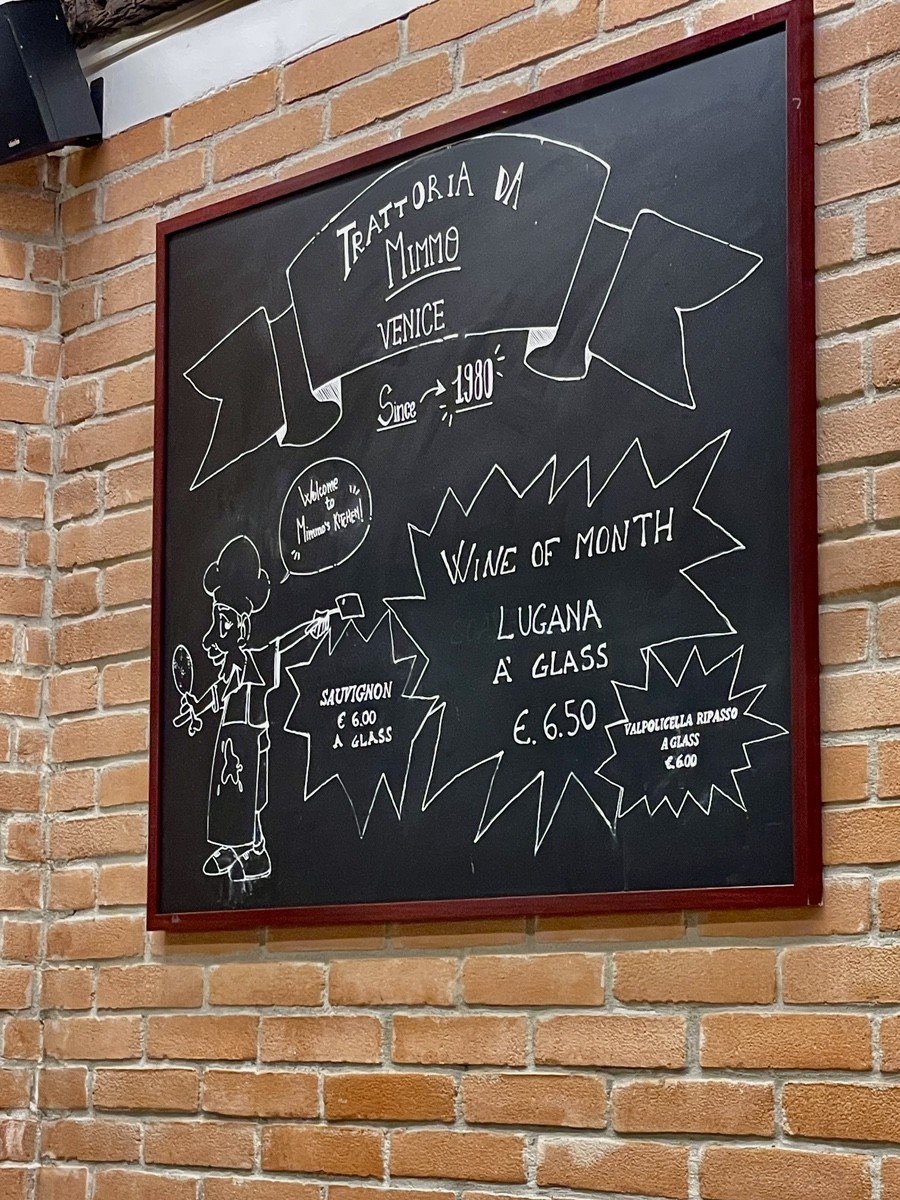 TRATTORIA DA
MIMMO
VENICE
Since → 1980
Welcome
to
Mimmo's KITCHEN!
WINE OF MONTH
LUGANA
A' GLASS
€. 6.50
SAUVIGNON
€ 6.00
A GLASS
VALPOLICELLA RIPASSO
A GLASS
€.6.00